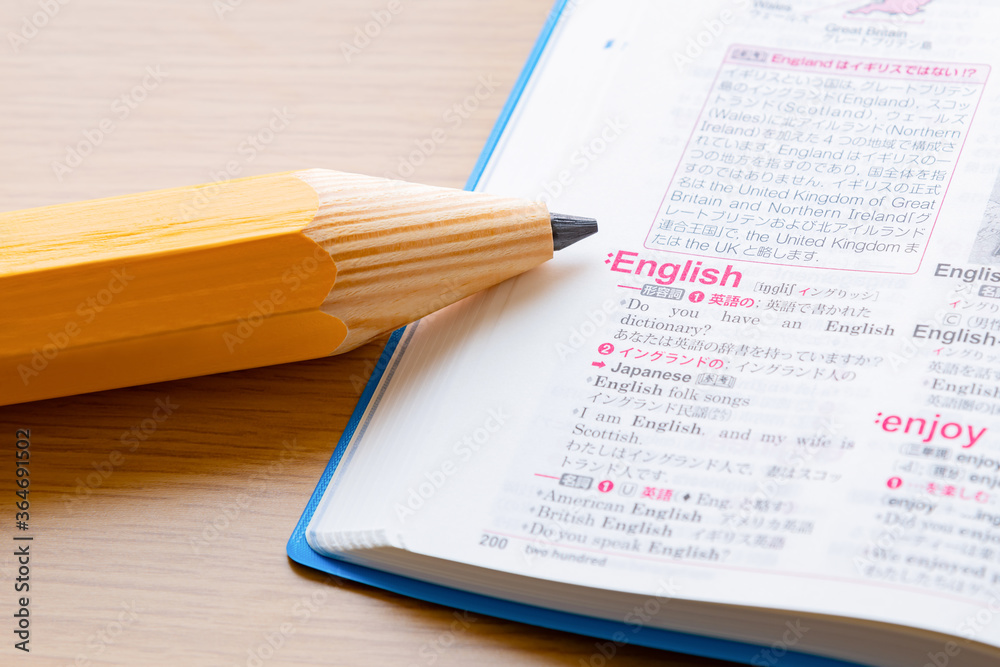 Wales
ウェールズ
Great Britain
グレートブリテン島
参考 Englandはイギリスではない!?
イギリスという国は, グレートブリテン
島のイングランド(England), スコッ
トランド(Scotland), ウェールズ
(Wales)に北アイルランド(Northern
Ireland)を加えた4つの地域で構成さ
れています. Englandはイギリスの一
つの地方を指すのであり, 国全体を指
すのではありません. イギリスの正式
名は the United Kingdom of Great
Britain and Northern Ireland「グ
レートブリテンおよび北アイルランド
連合王国」で, the United Kingdom ま
たは the UK と略します.
:English [íŋgliʃ イングリッシ]
形容詞 ❶ 英語の; 英語で書かれた
*Do you have an English
dictionary?
あなたは英語の辞書を持っていますか?
❷ イングランドの; イングランド人の
➡ Japanese 参考
*English folk songs
イングランド民謡
*I am English, and my wife is
Scottish.
わたしはイングランド人で, 妻はスコッ
トランド人です.
名詞 ❶ U 英語 (♦ Eng. と略す)
*American English アメリカ英語
*British English イギリス英語
*Do you speak English?
200 two hundred
English
English-
英語を話
*English
:enjoy
❶ を楽しむ
enjoy ...ing
*Did you enjoy
*We enjoyed
Adobe Stock | #364691502